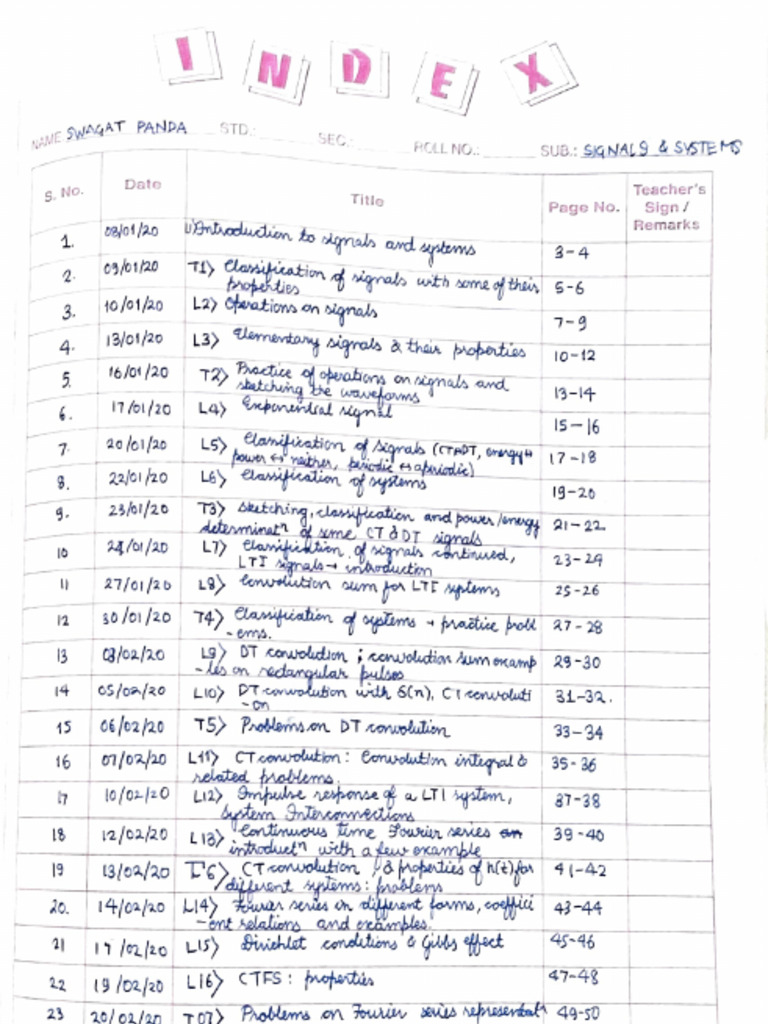 INDEX
NAME SWAGAT PANDA STD.: SEC.: ROLL NO.: SUB.: SIGNALS & SYSTEMS
S. No. Date Title Page No. Teacher's Sign / Remarks
1. 08/01/20 Introduction to signals and systems 3-4
2. 09/01/20 T1> Classification of signals with some of their 5-6
properties
3. 10/01/20 L2> Operations on signals 7-9
4. 13/01/20 L3> Elementary signals & their properties 10-12
5. 16/01/20 T2> Practice of operations on signals and 13-14
sketching the waveforms
6. 17/01/20 L4> Exponential signal 15-16
7. 20/01/20 L5> Classification of signals (CT↔DT, energy↔ 17-18
power ↔ neither, periodic ↔ aperiodic)
8. 22/01/20 L6> Classification of systems 19-20
9. 23/01/20 T3> Sketching, classification and power/energy 21-22
determinatⁿ of some CT & DT signals
10 24/01/20 L7> Classification of signals continued, 23-24
LTI signals → introduction
11 27/01/20 L8> Convolution sum for LTI systems 25-26
12 30/01/20 T4> Classification of systems → practice probl 27-28
-ems.
13 03/02/20 L9> DT convolution ; convolution sum examp 29-30
-les on rectangular pulses
14 05/02/20 L10> DT convolution with δ(n), CT convoluti 31-32.
-on
15 06/02/20 T5> Problems on DT convolution 33-34
16 07/02/20 L11> CT convolution : Convolution integral & 35-36
related problems.
17 10/02/20 L12> Impulse response of a LTI system, 37-38
System Interconnections
18 12/02/20 L13> Continuous time Fourier series 39-40
introductⁿ with a few example
19 13/02/20 T6> CT convolution & properties of h(t) for 41-42
different systems : problems
20. 14/02/20 L14> Fourier series in different forms, coeffici 43-44
-ent relations and examples.
21 17/02/20 L15> Dirichlet conditions & Gibbs effect 45-46
22 19/02/20 L16> CTFS : properties 47-48
23 20/02/20 T07> Problems on Fourier series representatⁿ 49-50